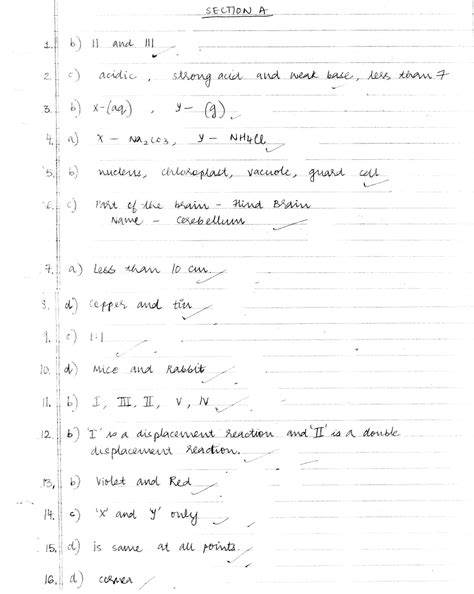 SECTION A
1. b) II and III
2. c) acidic, strong acid and weak base, less than 7
3. b) X-(aq), Y-(g)
4. a) X - Na2CO3, Y - NH4Cl
5. b) nucleus, chloroplast, vacuole, guard cell
6. c) Part of the brain - Hind Brain
Name - Cerebellum
7. a) Less than 10 cm.
8. d) Copper and tin
9. c) 1:1
10. d) Mice and Rabbit
11. b) I, III, II, V, IV
12 b) 'I' is a displacement reaction and 'II' is a double
displacement reaction.
13, b) Violet and Red
14. c) 'X' and 'Y' only
15. d) is same at all points.
16. d) cornea